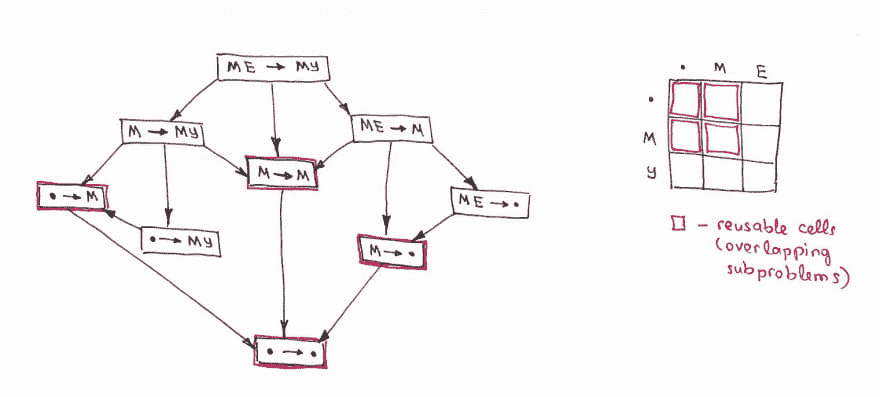 ME → MY
M → MY
ME → M
M → M
• → M
ME → •
• → MY
M → •
• → •
• M E
•
M
Y
– reusable cells
(overlapping
subproblems)